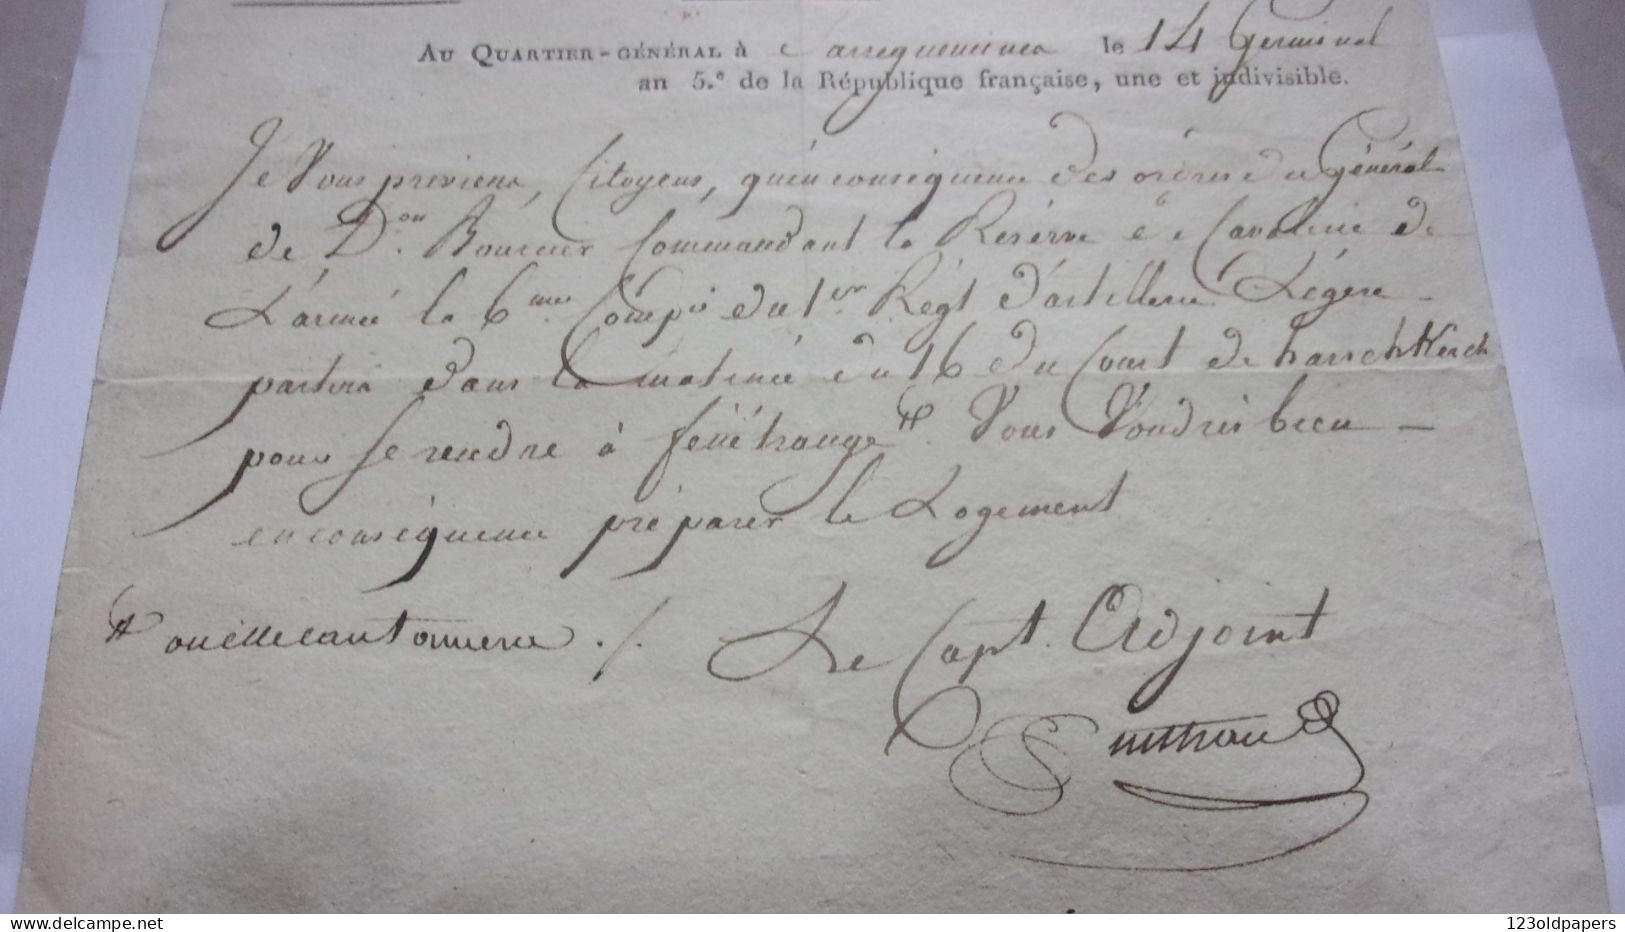 AU QUARTIER-GÉNÉRAL à Sarreguemines le 14 Germinal
an 5.e de la République française, une et indivisible.
Je Vous préviens, Citoyens, qu'en conséquence des ordres du Général
de D.on Bourcier Commandant la Réserve de Cavalerie de
L'armée la 6me Compie du 1er Régt d'artillerie Légère
partira dans la matinée du 16 du Court de harschkirch
pour se rendre à fénétrange #. Vous Voudrés bien
en conséquence préparer le Logement
# ou elle cantonnera ./.
Le Capt. Adjoint
Delcampe.net
123oldpapers